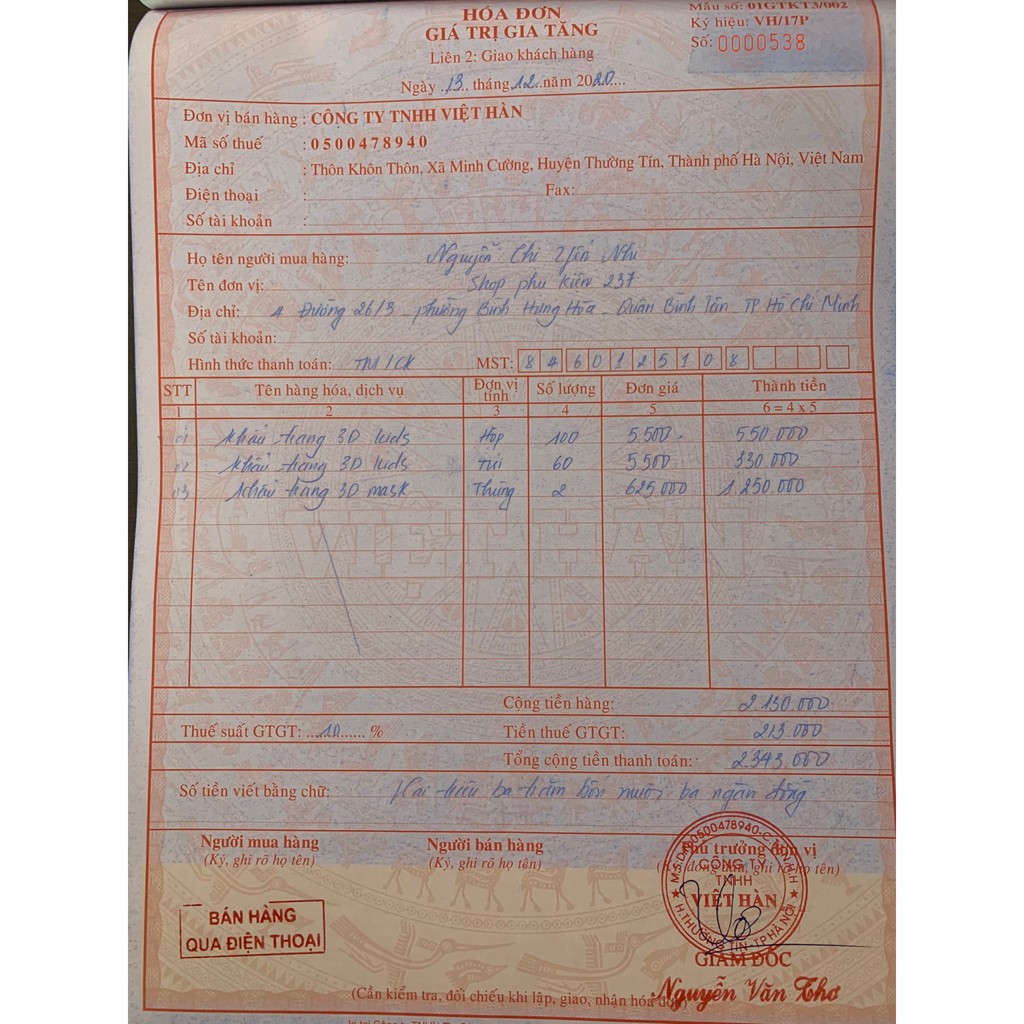 HÓA ĐƠN
GIÁ TRỊ GIA TĂNG
Liên 2: Giao khách hàng
Ngày 13 tháng 12 năm 2020
Mẫu số: 01GTKT3/002
Ký hiệu: VH/17P
Số: 0000538
Đơn vị bán hàng : CÔNG TY TNHH VIỆT HÀN
Mã số thuế : 0500478940
Địa chỉ : Thôn Khôn Thôn, Xã Minh Cường, Huyện Thường Tín, Thành phố Hà Nội, Việt Nam
Điện thoại : Fax:
Số tài khoản :
Họ tên người mua hàng: Nguyễn Thị Yến Nhi
Tên đơn vị: Shop phụ kiện 237
Địa chỉ: 4 Đường 26/3 - phường Bình Hưng Hòa - Quận Bình Tân - TP Hồ Chí Minh
Số tài khoản:
Hình thức thanh toán: TM/CK MST: 8460125108
STT Tên hàng hóa, dịch vụ Đơn vị tính Số lượng Đơn giá Thành tiền
1 2 3 4 5 6 = 4 x 5
01 Khẩu trang 3D kids Hộp 100 5.500 550.000
02 Khẩu trang 3D kids Túi 60 5.500 330.000
03 Khẩu trang 3D mask Thùng 2 625.000 1.250.000
VIETHAN
Cộng tiền hàng: 2.130.000
Thuế suất GTGT: 10 % Tiền thuế GTGT: 213.000
Tổng cộng tiền thanh toán: 2.343.000
Số tiền viết bằng chữ: Hai triệu ba trăm bốn mươi ba ngàn đồng
Người mua hàng Người bán hàng Thủ trưởng đơn vị
(Ký, ghi rõ họ tên) (Ký, ghi rõ họ tên) (Ký đóng dấu, ghi rõ họ tên)
M.S.D.N:0500478940-C.T.T.N.H.H
CÔNG TY
TNHH
VIỆT HÀN
H.THƯỜNG TÍN-TP HÀ NỘI
BÁN HÀNG
QUA ĐIỆN THOẠI
GIÁM ĐỐC
Nguyễn Văn Thơ
(Cần kiểm tra, đối chiếu khi lập, giao, nhận hóa đơn)